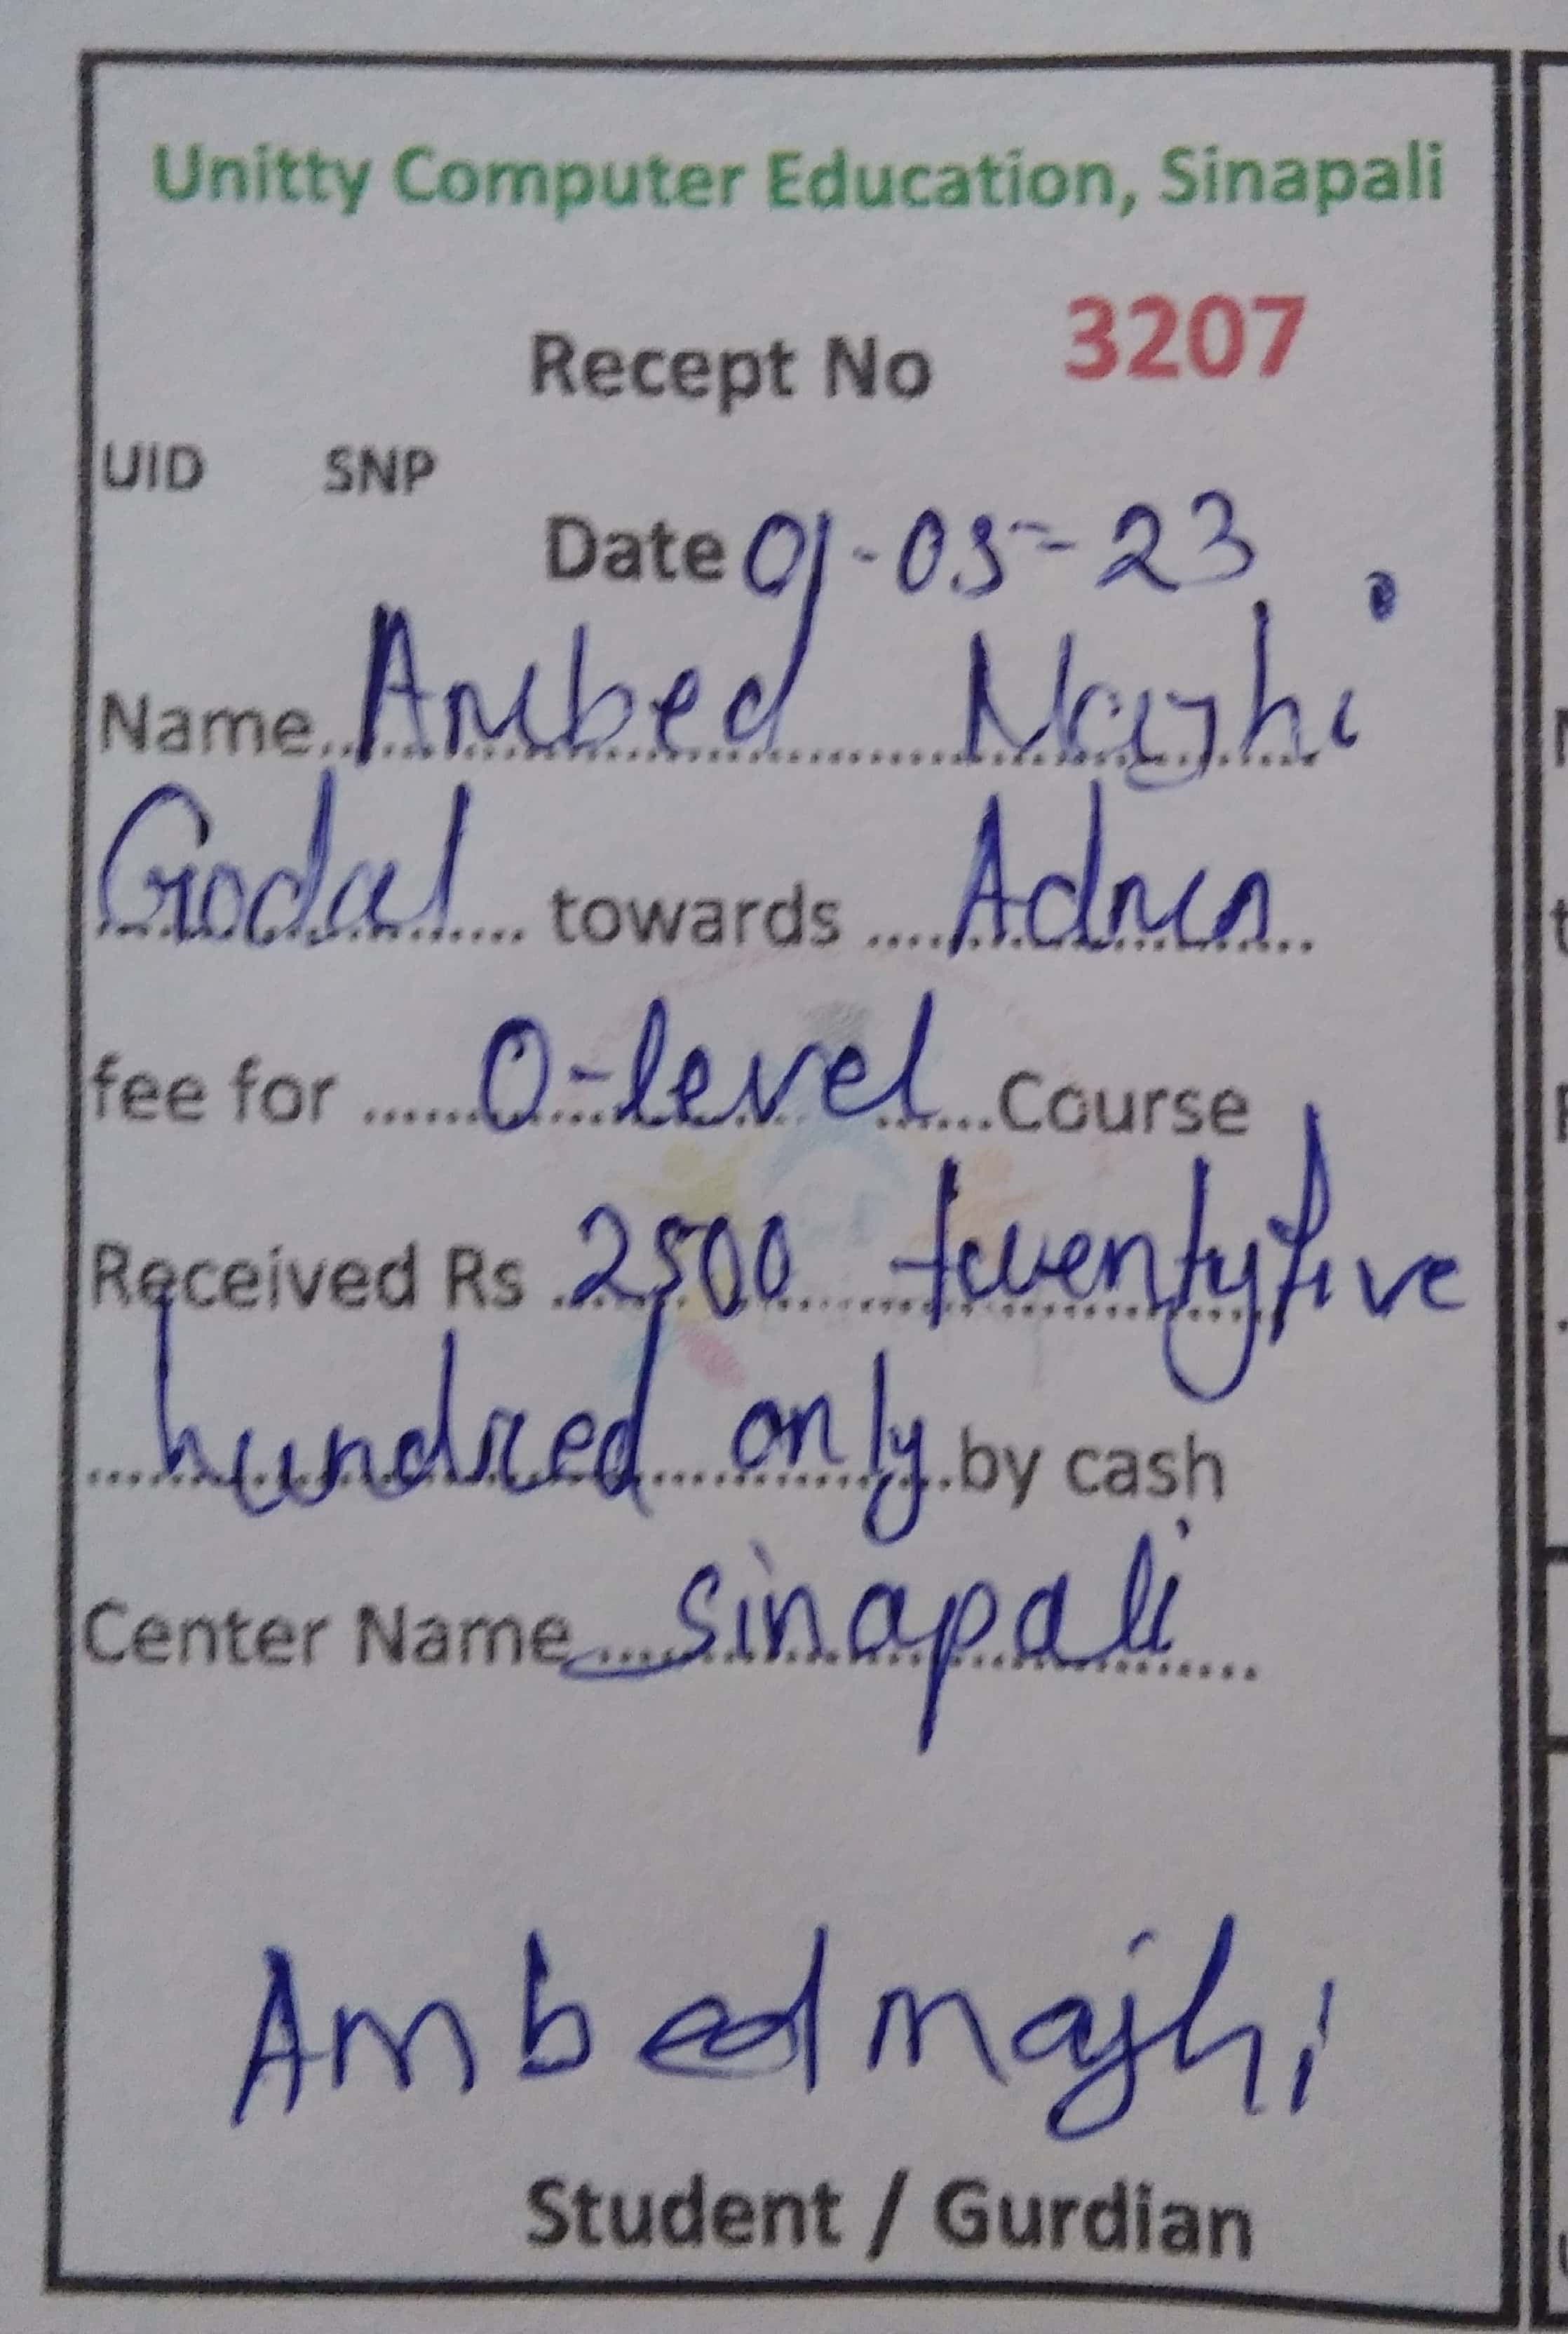 Unitty Computer Education, Sinapali
Recept No 3207
UID SNP
Date 01-05-23
Name Ambed Majhi
Godal towards Admn
fee for O-level Course
Received Rs 2500 twentyfive
hundred only by cash
Center Name Sinapali
Ambed majhi
Student / Gurdian